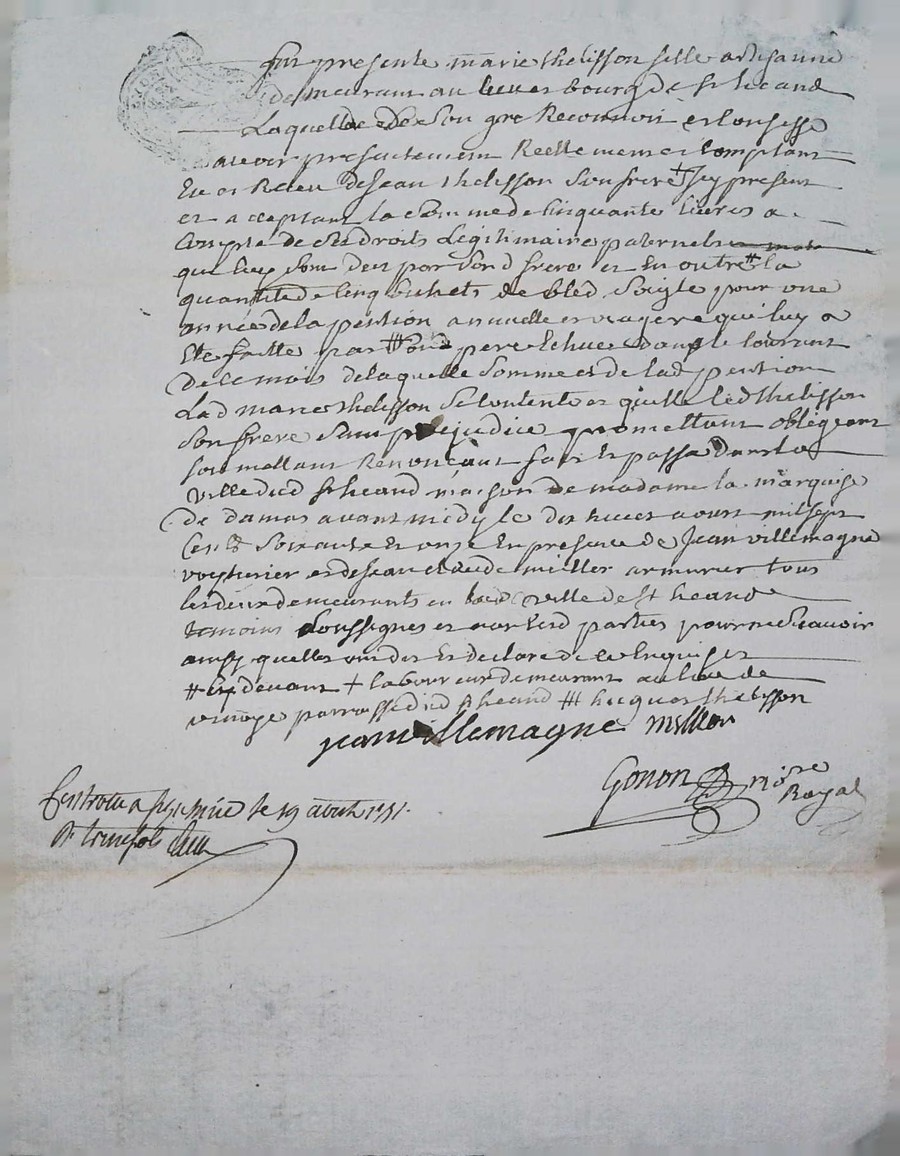 fut presente marie thelisson fille artisanne
demeurant au lieu et bourg de st heand
Laquelle de Son gre Reconnoit et Confesse
avoir presentement Reellement et Comptant
Eu et Receu de Jean thelisson Son frere + Icy present
et acceptant la Somme de Cinquante livres a
Compte de Ses droits Legitimaires paternels
qui luy Sont deus par Sond frere et En outre # la
quantité de Cinq bichets de bled Soigle pour une
année de la pention annuelle et viagere qui luy a
Eté faitte par ## Son pere Echue dans le Courant
De Ce mois de laquelle Somme et de lad pention
Lad marie thelisson Se Contente et quitte led thelisson
Son frere Sans prejudice promettant obligeant
Soumettant Renoncant fait Et passé dans la
ville dud st heand maison de madame la marquise
de damas avant midy le dix huit aoust mil Sept
Cent Soixante Et onze En presence de Jean villemagne
voiturier et de Jean Claude meiller armurier tous
les deux demeurants en lad ville de st heand
temoins Soussignes et non lesd parties pour ne Scavoir
ainsy quelles ont dit Et declaré de ce Enquises
# Cy devant + laboureur demeurant au lieu de
parroisse dud st heand ## thelisson
jean villemagne meiller
Gonon nore
Royal
Controlé a st le 19 aoust 1771
R.